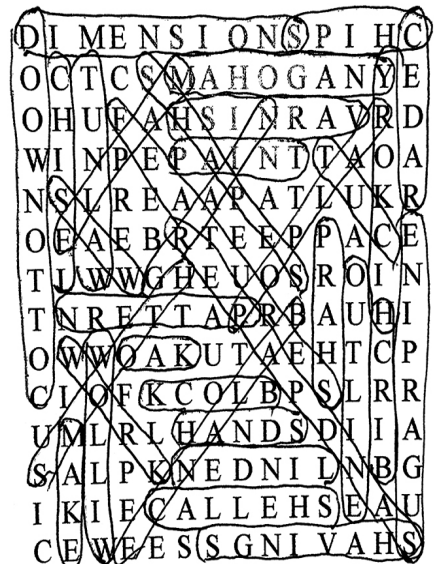 D I M E N S I O N S P I H C
O C T C S M A H O G A N Y E
O H U F A H S I N R A V R D
W I N P E P A I N T T A O A
N S L R E A A P A T L U K R
O E A E B R T E E P P A C E
T I W W G H E U O S R O I N
T N R E T T A P R B A U H I
O W W O A K U T A E H T C P
C I O F K C O L B P S L R R
U M L R L H A N D S D I I A
S A L P K N E D N I L N B G
I K I E C A L L E H S E A U
C E W E E S S G N I V A H S